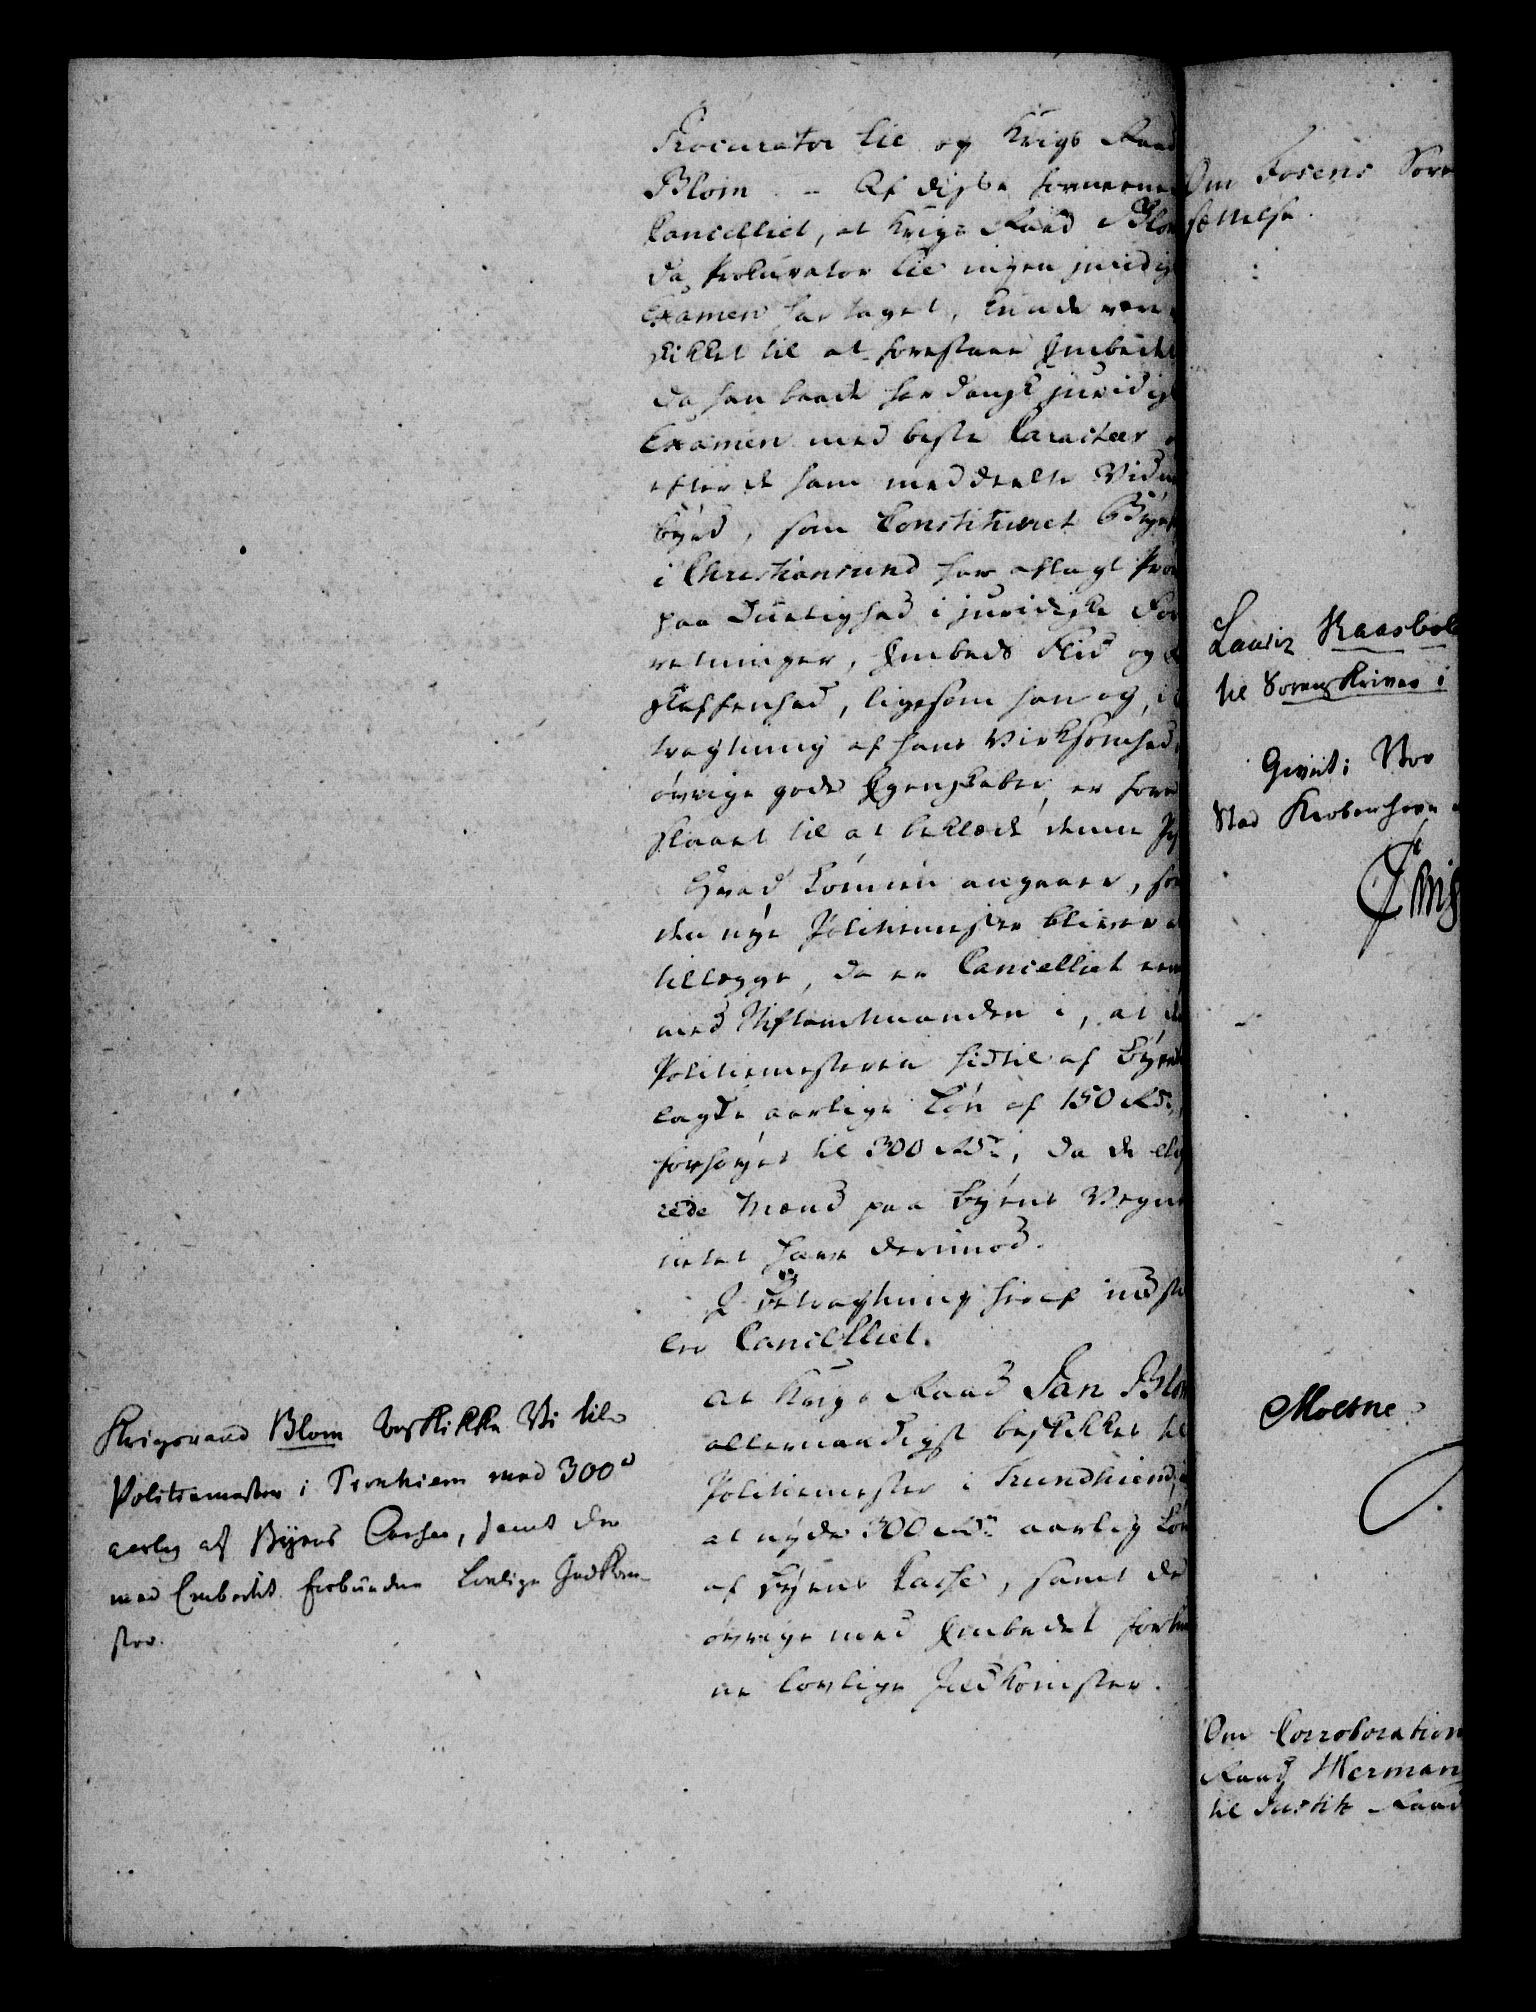 Procurator Lie og Krigs Raad
Blom. – Af disse formeener
Cancelliet, at Krigs Raad Blom
da Procurator Lie ingen juridisk
Examen har taget, kunde være
skikket til at forestaae Embedet
da han baade har dansk juridisk
Examen med beste Caracteer
efter de ham meddeelte Vidnes
byrd, som Constitueret Byefoged
i Christiansund har aflagt Prøve
paa Duelighed i juridiske For
retninger, Embeds Flid og
skaffenhed, ligesom han og, i Be
tragtning af hans Virksomhed
øvrige gode Egenskaber, er fore
slaaet til at beklæde denne Post
Hvad Lønnen angaaer, som
den nye Politiemester bliver at
tillægge, da er Cancelliet eenig
med Stiftamtmanden i, at den
Politiemesteren hidtil af Byen til
lagte aarlige Løn af 150 Rd.
forhøyes til 300 Rd., da de elige
rede Mænd paa Byens Vegne
intet have derimod.
I Betragtning heraf indstil
ler Cancelliet.
At Krigs Raad Jan Blom
allernaadigst beskikkes til
Politiemester i Trundhiem,
at nyde 300 Rd. aarlig Løn
af Byens Casse, samt de
øvrige med Embedet forbund
ne lovlige Indkomster.
Krigsraad Blom beskikke Vi til
Politiemester i Tronhiem med 300 d
aarlig af Byens Casse, samt de
med Embedet forbundne lovlige Indkom-
ster.
Om Fosens Soren
sættelse.
Lauriz Raasbøl
til Sorenskriver i
Givet i Vor
Stad Kiøbenhavn
Moesne
Om Corroboration
Raad Herman
til Justits Raad